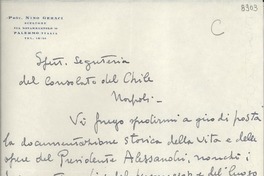 8303
C
Prof. Nino Geraci
Scultore
Palermo (Italia)
Spett. Segreteria
del Consolato del Chile
Napoli -
Vi prego spedirmi a giro di posta
la documentazione storica della vita e delle
opere del Presidente Alessandri, nonché i
del luogo